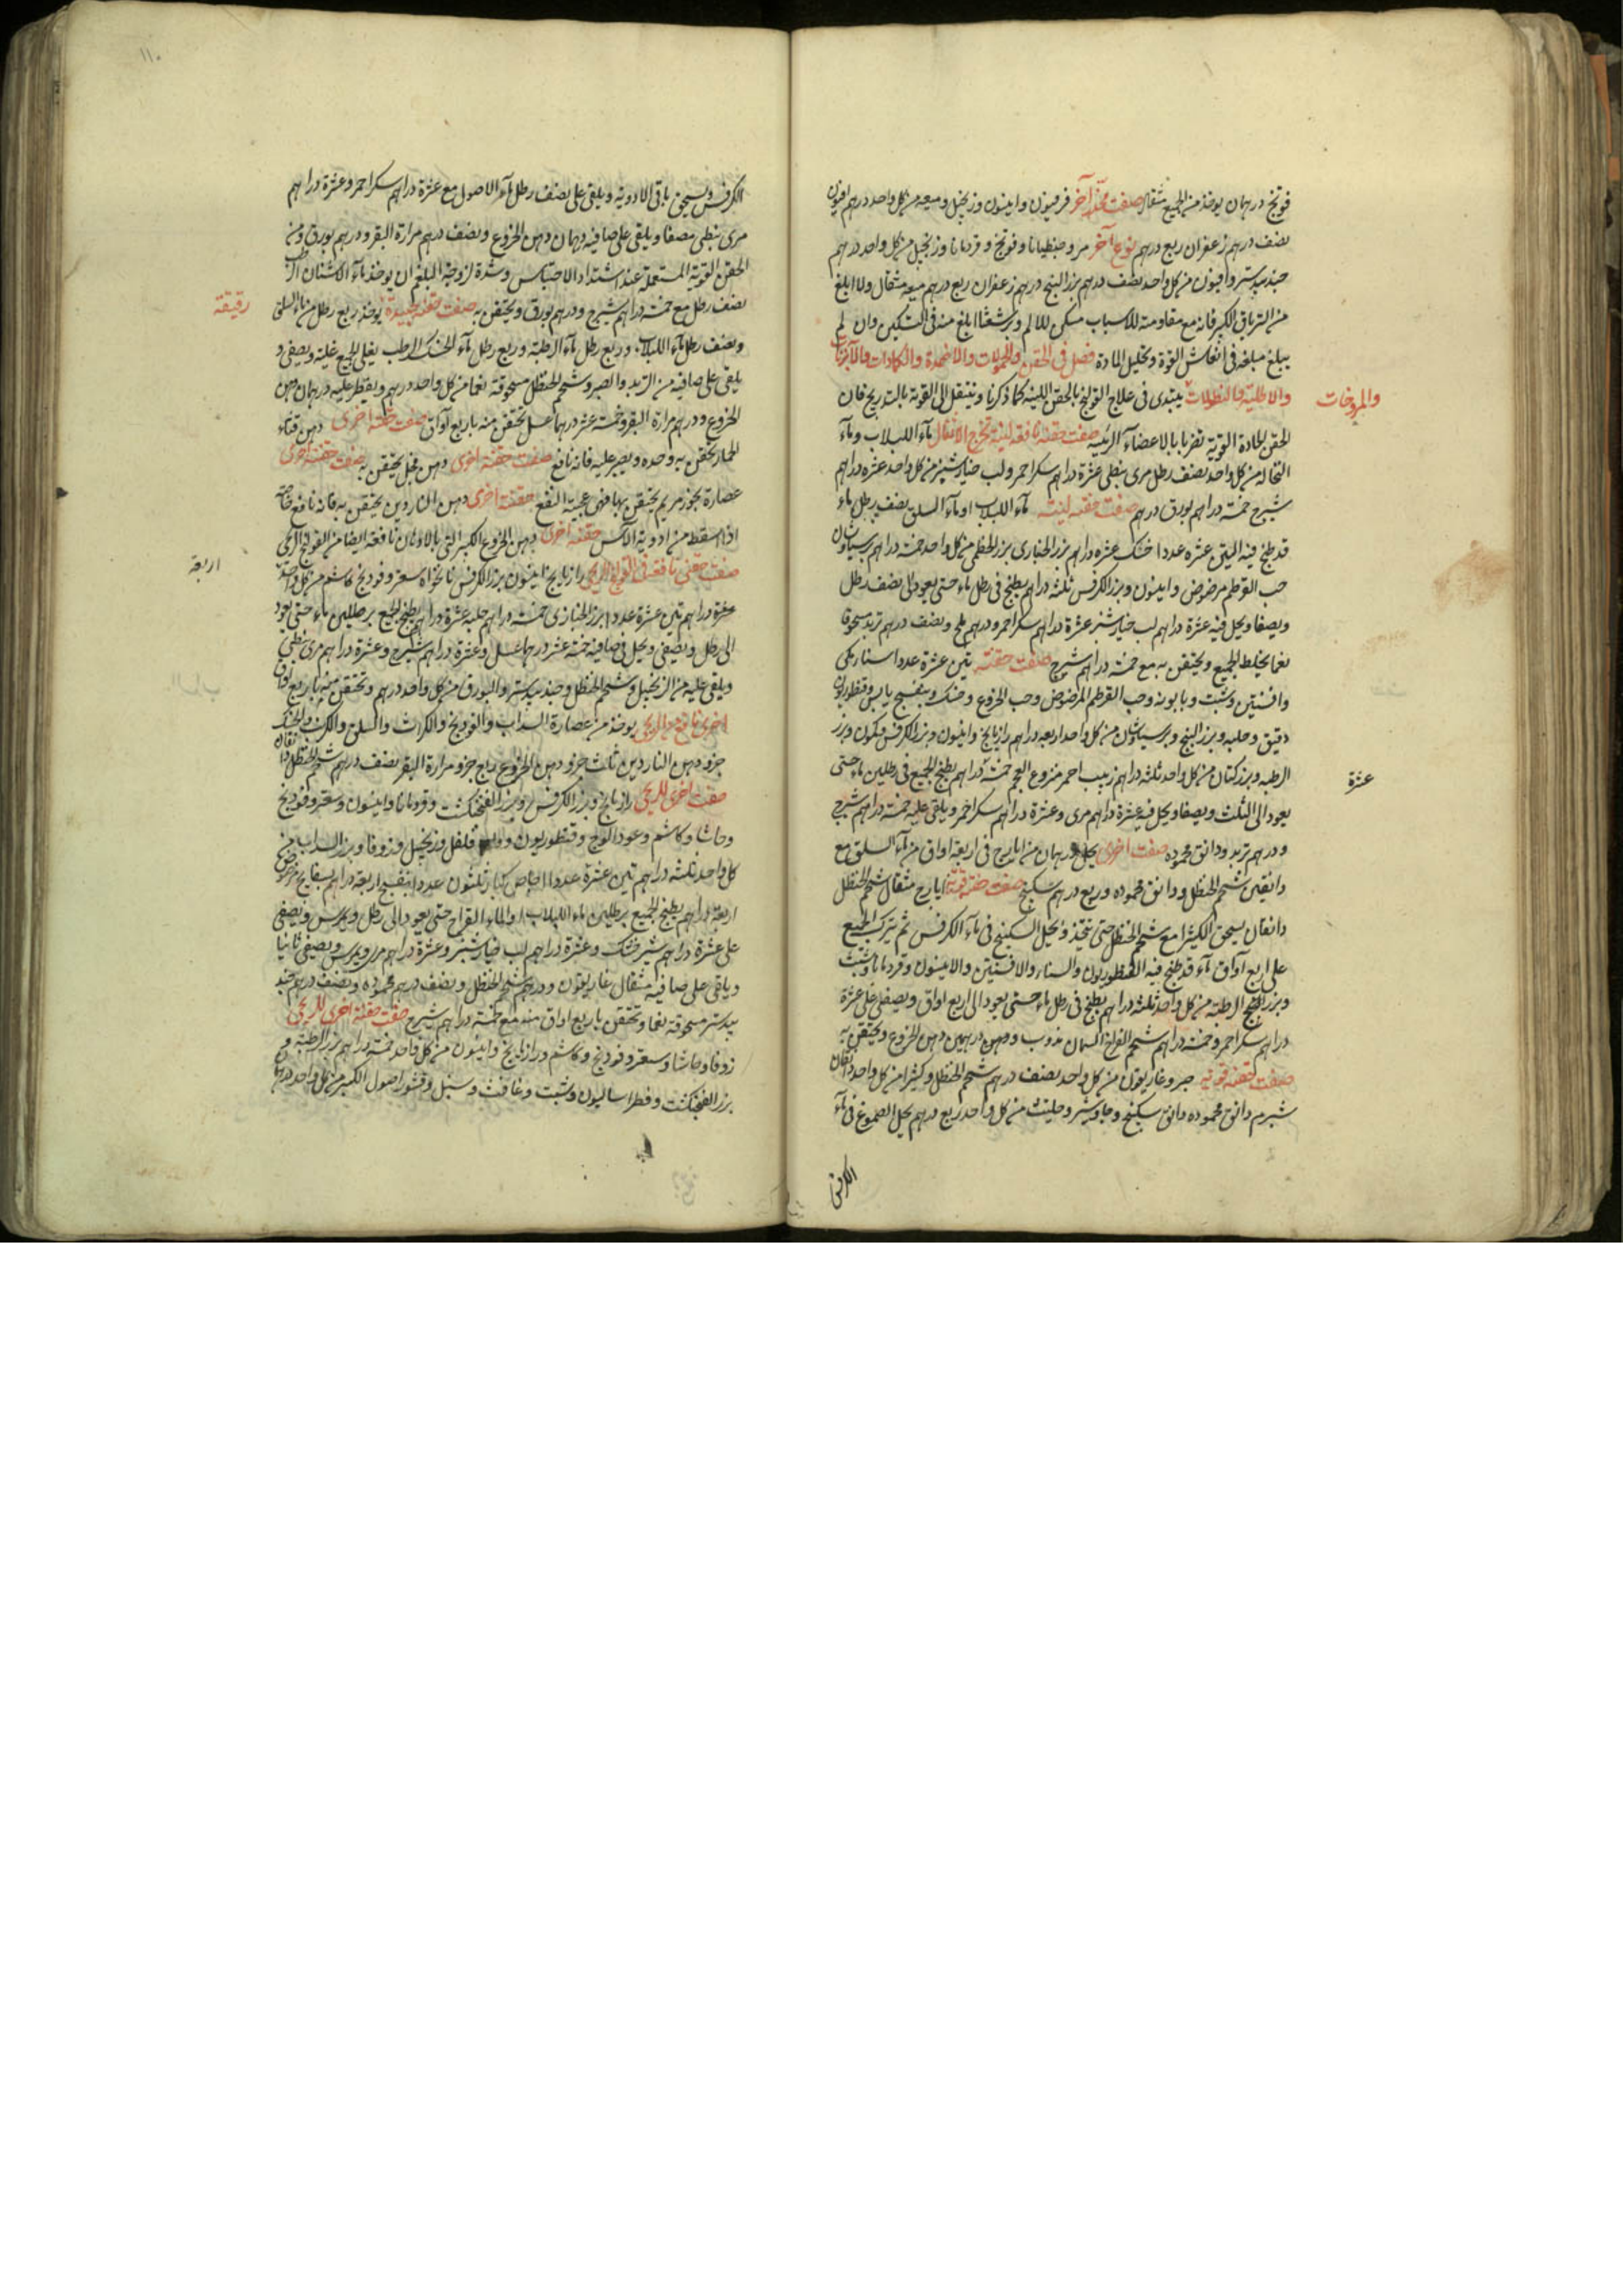 فوتنج درهمان يوخذ من الجميع مثقال صفت مخدر آخر فرفيون وانيسون وزنجبيل وميعه من كل واحد درهم افيون
نصف درهم زعفران ربع درهم نوع آخر مر و جنطيانا وفوتنج و قردمانا وزنجبيل من كل واحد درهم
جندبيدستر وافيون من كل واحد نصف درهم بزر البنج درهم زعفران ربع درهم ميعه مثقال ولا ابلغ
من الترياق الكبير فانه مع مقاومته للاسباب مسكن للالم وبرشعثا ابلغ منه فى التسكين وان لم
يبلغ مبلغه فى انعاش القوة وتحليل المادة فصل فى الحقن والحمولات والاضمدة والكمادات والآبزنات
والمروخات
والاطلية والنطولات يبتدى فى علاج القولنج بالحقن اللينه كما ذكرنا وينتقل الى القوية بالتدريج فان
الحقن الحادة القوية تضر بالاعضاء الرئيسه صفت حقنه نافعه لينة تخرج الاثفال مآء اللبلاب ومآء
النخاله من كل واحد نصف رطل مرى نبطى عشرة دراهم سكر احمر ولب خيارشنبر من كل واحد عشره دراهم
شيرج خمسة دراهم بورق درهم صفت حقنه لينه مآء اللبلاب او مآء السلق نصف رطل ماء
قد طبخ فيه التين عشره عددا خسك عشره دراهم بزر الخبازى بزر الخطمى من كل واحد خمسة دراهم برسياوشان
حب القرطم مرضوض وانيسون وبزر الكرفس ثلثه دراهم يطبخ فى رطل ماء حتى يعود الى نصف رطل
ويصفا ويحل فيه عشرة دراهم لب خيارشنبر عشرة دراهم سكر احمر ودرهم ملح ونصف درهم تربد مسحوقا
نعما يخلط الجميع ويحتقن به مع خمسة دراهم شيرج صفت حقنه تين عشرة عددا سنا مكى
وافسنتين وشبت وبابونه وحب القرطم المرضوض وحب الخروع وخسك وبنفسج يابس وقنطوريون
دقيق وحلبه وبزر البنج وبرسياوشان من كل واحد اربعه دراهم رازيانج وانيسون وبزر الكرفس وكمون وبزر
عشرة
الرطبه وبزر كتان من كل واحد ثلثه دراهم زبيب احمر منزوع العجم خمسة دراهم يطبخ الجميع فى رطلين ماء حتى
يعود الى الثلث ويصفا ويحل فيه عشرة دراهم مرى وعشرة دراهم سكر احمر ويلقى عليه خمسة دراهم شيرج
ودرهم تربد ودانق محموده صفت اخرى يحل درهمان من ايارج فى اربعة اواق من مآء السلق مع
دانقين شحم الحنظل ودانق محموده وربع درهم سكبينج صفت حقنة قوية ايارج مثقال شحم الحنظل
دانقان يسحق الكثيرا مع شحم الحنظل حتى تتحد ويحل السكبينج فى مآء الكرفس ثم يترك الجميع
على اربع آواق مآء قد طبخ فيه القنطوريون والسناء والافسنتين والانيسون وقردمانا وشبث
وبزر البنج الرطبة من كل واحد ثلثه دراهم يطبخ فى رطل ماء حتى يعود الى اربع اواق ويصفى على عشرة
دراهم سكر احمر وخمسة دراهم شحم الفراخ السمان مذوب ودرهمين دهن الخروع ويحتقن به
صفت حقنه قويه صبر وغاريقون من كل واحد نصف درهم شحم الحنظل وكثيرا من كل واحد دانقان
شبرم دانق محموده دانق سكبينج وجاوشير وحلتيت من كل واحد ربع درهم يحل الصموغ فى مآء
الكرفس
١١٠
الكرفس ويسحق باقى الادويه ويلقى على نصف رطل مآء الاصول مع عشرة دراهم سكر احمر وعشرة دراهم
مرى نبطى مصفا ويلقى على صافيه درهمان دهن الخروع ونصف درهم مرارة البقر ودرهم بورق ومن
الحقن القوية المستعملة عند اشتداد الاحتباس وشدة لزوجة البلغم ان يوخذ مآء الاشنان الرطب
نصف رطل مع خمسة دراهم شيرج ودرهم بورق ويحتقن به صفت حقنه جيدة يوخذ ربع رطل من ماء السلق
رقيقة
ونصف رطل مآء اللبلاب وربع رطل مآء الرطبة وربع رطل مآء الخسك الرطب يغلى الجميع غليه ويصفى و
يلقى على صافيه من التربد والصبر وشحم الحنظل مسحوقة نعما من كل واحد درهم ويقطر عليه درهمان دهن
الخروع ودرهم مرارة البقر وخمسة عشر درهما عسل يحتقن منه باربع آواق صفت حقنه اخرى دهن قثاء
الحمار يحتقن به وحده ويصبر عليه فانه نافع صفت حقنه اخرى دهن فجل يحتقن به صفت حقنه اخرى
عصارة بخور مريم يحتقن بها فهى عجيبة النفع حقنة اخرى دهن الناردين يحتقن به فانه نافع خاصة
اذا سقط من ادويه الآس حقنه اخرى دهن الخروع نافعة ايضا من القولنج الريحى
صفت حقنى نافعة فى القولنج الريحى رازيانج انيسون بزر الكرفس نانخواه سعتر وفودنج كاشم من كل واحد
اربعة
عشرة دراهم تين عشرة عددا بزر الخبازى خمسة دراهم حلبه عشرة دراهم يطبخ الجميع برطلين ماء حتى يعود
الى رطل ويصفى ويحل فى صافيه خمسة عشر درهما عسل وعشرة دراهم شيرج وعشرة دراهم مرى نبطى
ويلقى عليه من الزنجبيل وشحم الحنظل وجندبيدستر والبورق من كل واحد درهم وتحتقن منه باربع اواق
اخرى نافع من الريحى يوخذ من عصارة السداب والفودنج والكراث والسلق والكرنب والخسك
جزو دهن الناردين ثلث جزو دهن الخروع ربع جزو مرارة البقر نصف درهم شحم الحنظل دانقان
صفت اخرى للريحى رازيانج وبزر الكرفس وبزر الفنجنكشت وقردمانا وانيسون وسعتر وفودنج
وحاشا وكاشم وعود الوج وقنطوريون فلفل وزنجبيل وزوفا وبزر السداب من
كل واحد ثلثه دراهم تين عشرة عددا اجاص كبار ثلثون عددا بنفسج اربعة دراهم بسفايج مرضوض
اربعة دراهم يطبخ الجميع برطلين ماء اللبلاب او الماء القراح حتى يعود الى رطل ويمرس ويصفى
على عشرة دراهم شيرخشك وعشرة دراهم لب خيارشنبر وعشرة دراهم مرى ويمرس ويصفى ثانيا
ويلقى على صافيه مثقال غاريقون ودرهم شحم الحنظل ونصف درهم محموده ونصف درهم جند
بيدستر مسحوقة نعما وتحتقن باربع اواق منه مع خمسة دراهم شيرج صفت حقنة اخرى للريحى
زوفا وحاشا وسعتر وفودنج وكاشم ورازيانج وانيسون من كل واحد خمسة دراهم بزر الرطبة و
بزر الفنجنكشت وفطراساليون وشبت وغافت وسنبل وقشور اصول الكبر من كل واحد درهمان